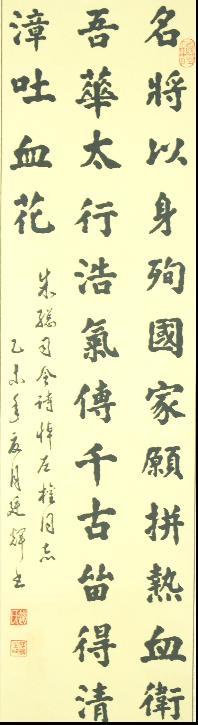 名將以身殉國家願拼熱血衛
吾華太行浩氣傳千古留得清
漳吐血花
朱總司令詩悼左權同志
乙未年夏月廷輝書